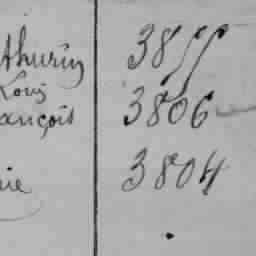 thurin 3855
Louis
ançois 3806
rie 3804